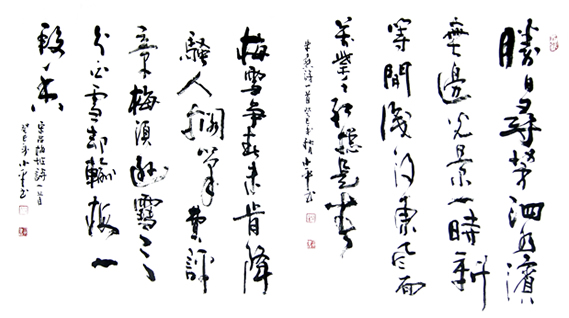 勝日尋芳泗水濱
無邊光景一時新
等閒識得東風面
萬紫千紅總是春
朱熹詩一首癸巳年秋小平書
梅雪爭春未肯降
騷人擱筆費評
章梅須遜雪三
分白雪卻輸梅一
段香
宋盧梅坡詩一首
癸巳年小平書